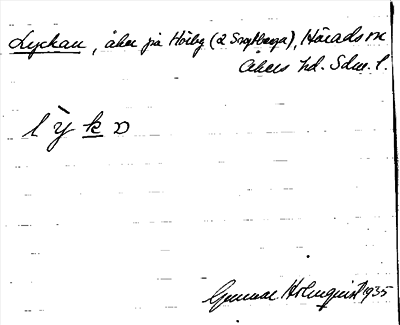 Lyckan, åker på Hörby (2 Snytberga), Härads sn
Åkers hd. Sdm. l.
l ỳ k ɔ
Gunnar Holmquist 1935